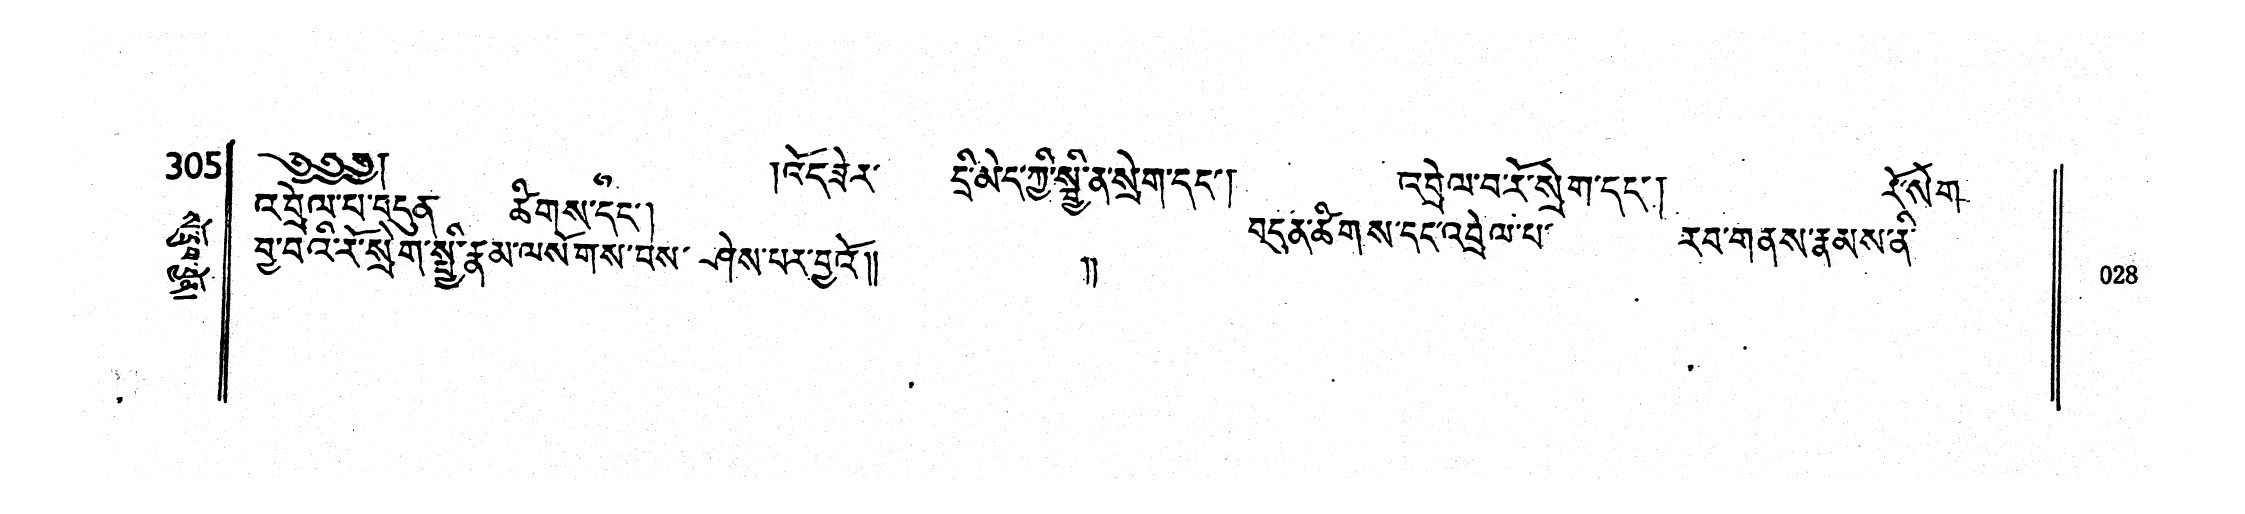 305
༄༅༅། །འོད་ཟེར་ དྲི་མེད་ཀྱི་སྦྱིན་སྲེག་དང་། འབྲེལ་བ་རོ་སྲེག་དང་། རོ་སོག
འབྲེལ་པ་བདུན ཚིགས་དང་། བདུན་ཚིགས་དང་འབྲེལ་པ་ རབ་གནས་རྣམས་ནི་
བྱ་བའི་རོ་སྲེག་སྤྱི་རྣམ་ལསོགས་པས་ ཤེས་པར་བྱའོ།། །།
028